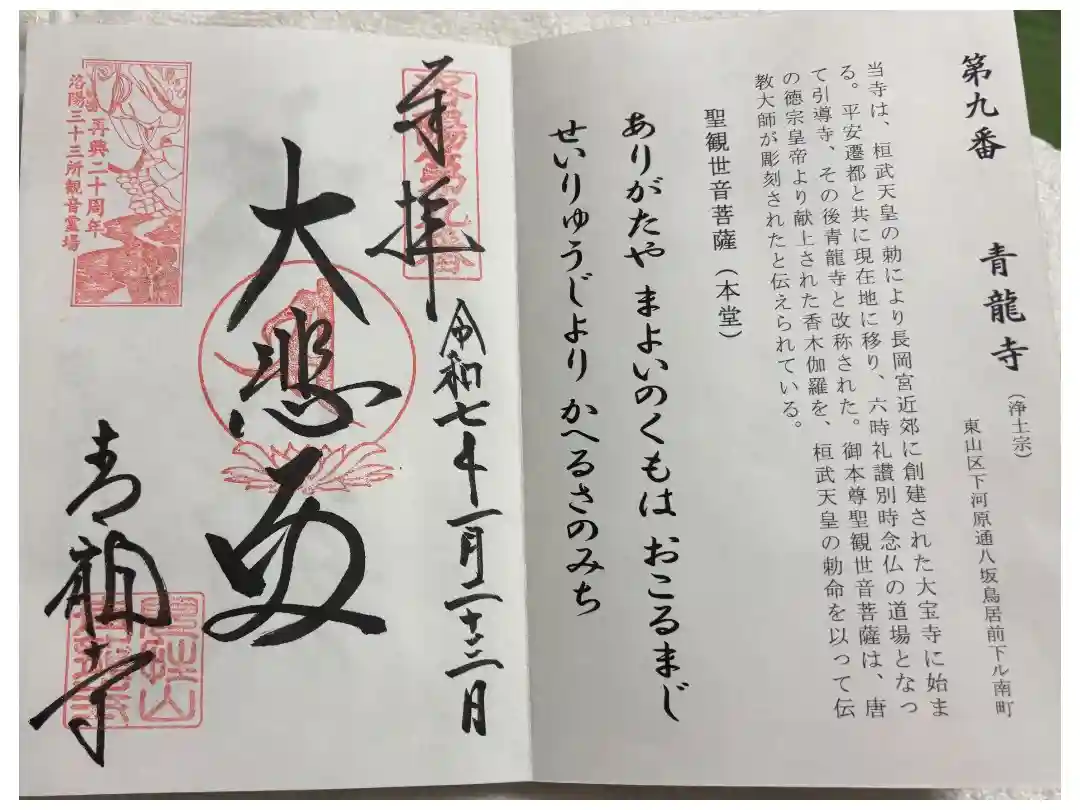 第九番 青龍寺(浄土宗)
東山区下河原通八坂鳥居前下ル南町
当寺は、桓武天皇の勅により長岡宮近郊に創建された大宝寺に始ま
る。平安遷都と共に現在地に移り、六時礼讃別時念仏の道場となっ
て引導寺、その後青龍寺と改称された。御本尊聖観世音菩薩は、唐
の徳宗皇帝より献上された香木伽羅を、桓武天皇の勅命を以って伝
教大師が彫刻されたと伝えられている。
聖観世音菩薩(本堂)
ありがたや まよいのくもは おこるまじ
せいりゅうじより かへるさのみち
洛陽第九番
奉拝
令和七年一月二十三日
大悲殿
再興二十周年
洛陽三十三所観音霊場
青龍寺